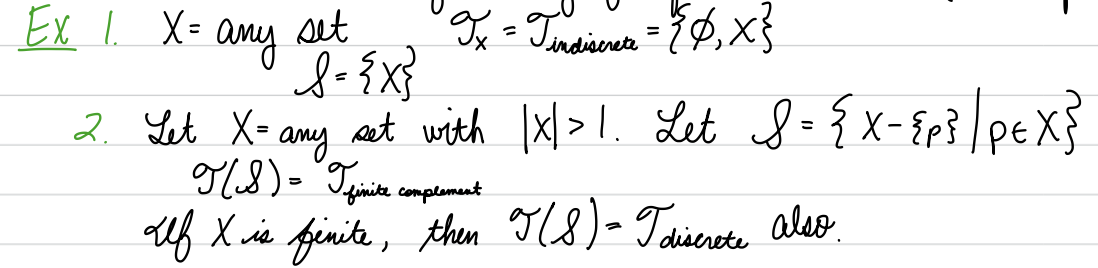 Ex 1. X = any set 𝒯ₓ = 𝒯indiscrete = {∅, X}
𝒮 = {X}
2. Let X = any set with |X| > 1. Let 𝒮 = { X - {p} | p ∈ X}
𝒯(𝒮) = 𝒯finite complement
If X is finite, then 𝒯(𝒮) = 𝒯discrete also.